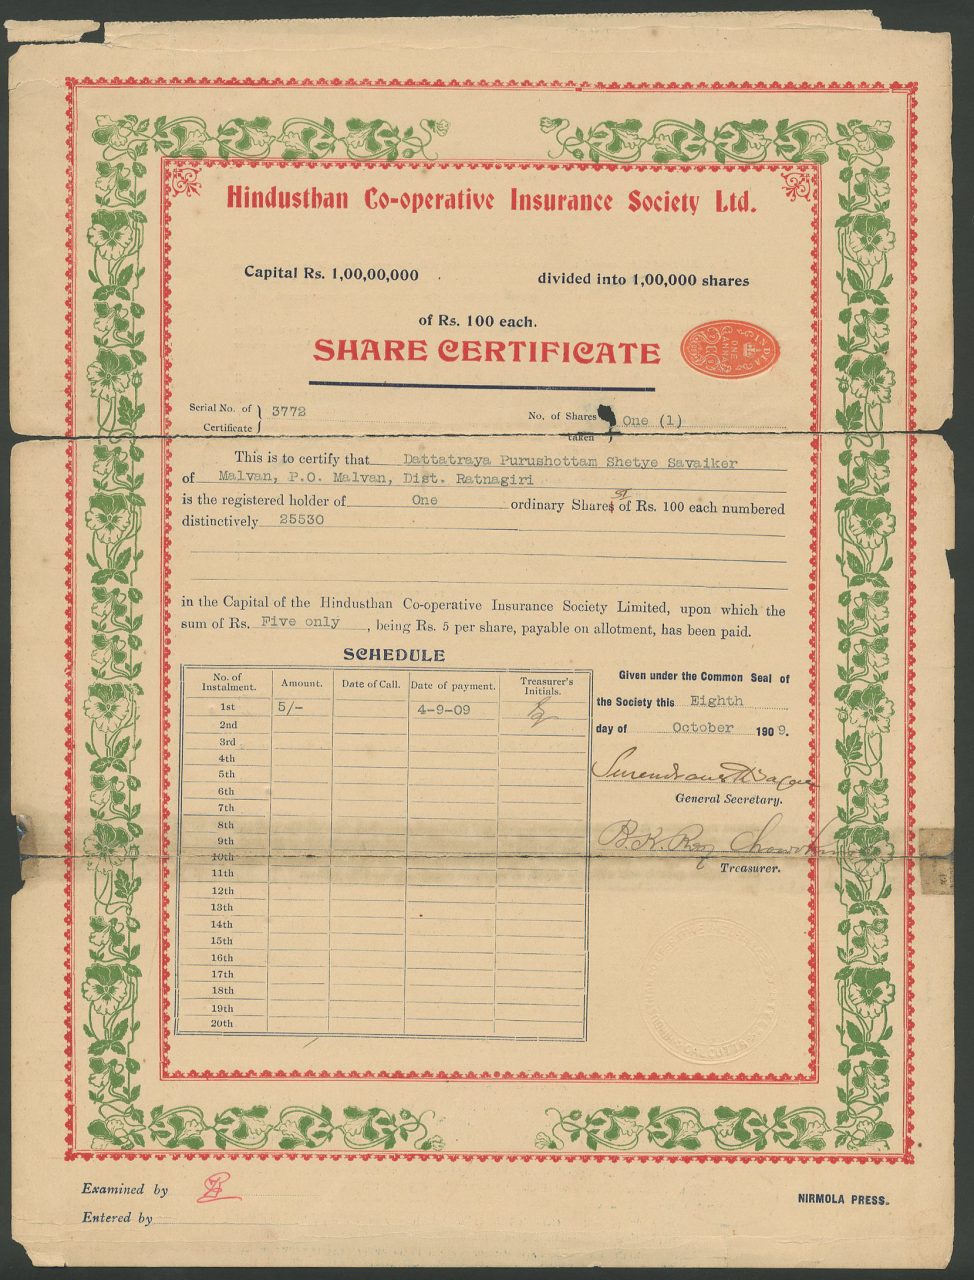 Hindusthan Co-operative Insurance Society Ltd.
Capital Rs. 1,00,00,000 divided into 1,00,000 shares
of Rs. 100 each.
SHARE CERTIFICATE
INDIA
ONE
ANNA
Serial No. of Certificate } 3772
No. of Shares taken } One (1)
This is to certify that Dattatraya Purushottam Shetye Savaiker
of Malvan, P.O. Malvan, Dist. Ratnagiri
is the registered holder of One ordinary Shares of Rs. 100 each numbered
distinctively 25530
in the Capital of the Hindusthan Co-operative Insurance Society Limited, upon which the
sum of Rs. Five only, being Rs. 5 per share, payable on allotment, has been paid.
SCHEDULE
No. of Instalment. Amount. Date of Call. Date of payment. Treasurer's Initials.
1st 5/- 4-9-09
2nd
3rd
4th
5th
6th
7th
8th
9th
10th
11th
12th
13th
14th
15th
16th
17th
18th
19th
20th
Given under the Common Seal of
the Society this Eighth
day of October 1909.
General Secretary.
B.K. Roy Chowdh
Treasurer.
CALCUTTA
Examined by
Entered by
NIRMOLA PRESS.